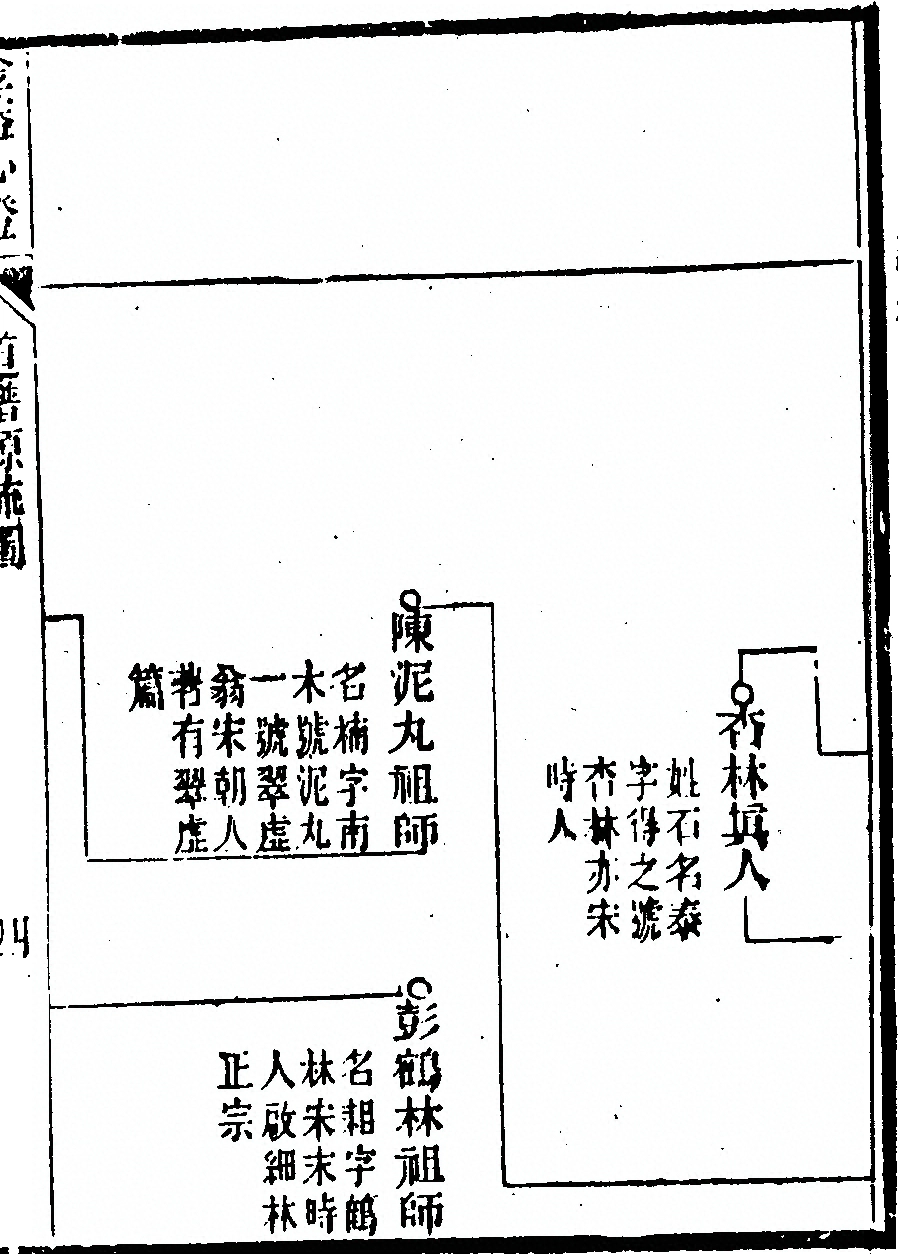 杏林眞人
姓石名泰
字得之號
杏林亦宋
時人
陳泥丸祖師
名楠字南
木號泥丸
一號翠虛
翁宋朝人
著有翠虛
篇
彭鶴林祖師
名耜字鶴
林宋末時
人啟細林
正宗
道譜源流圖